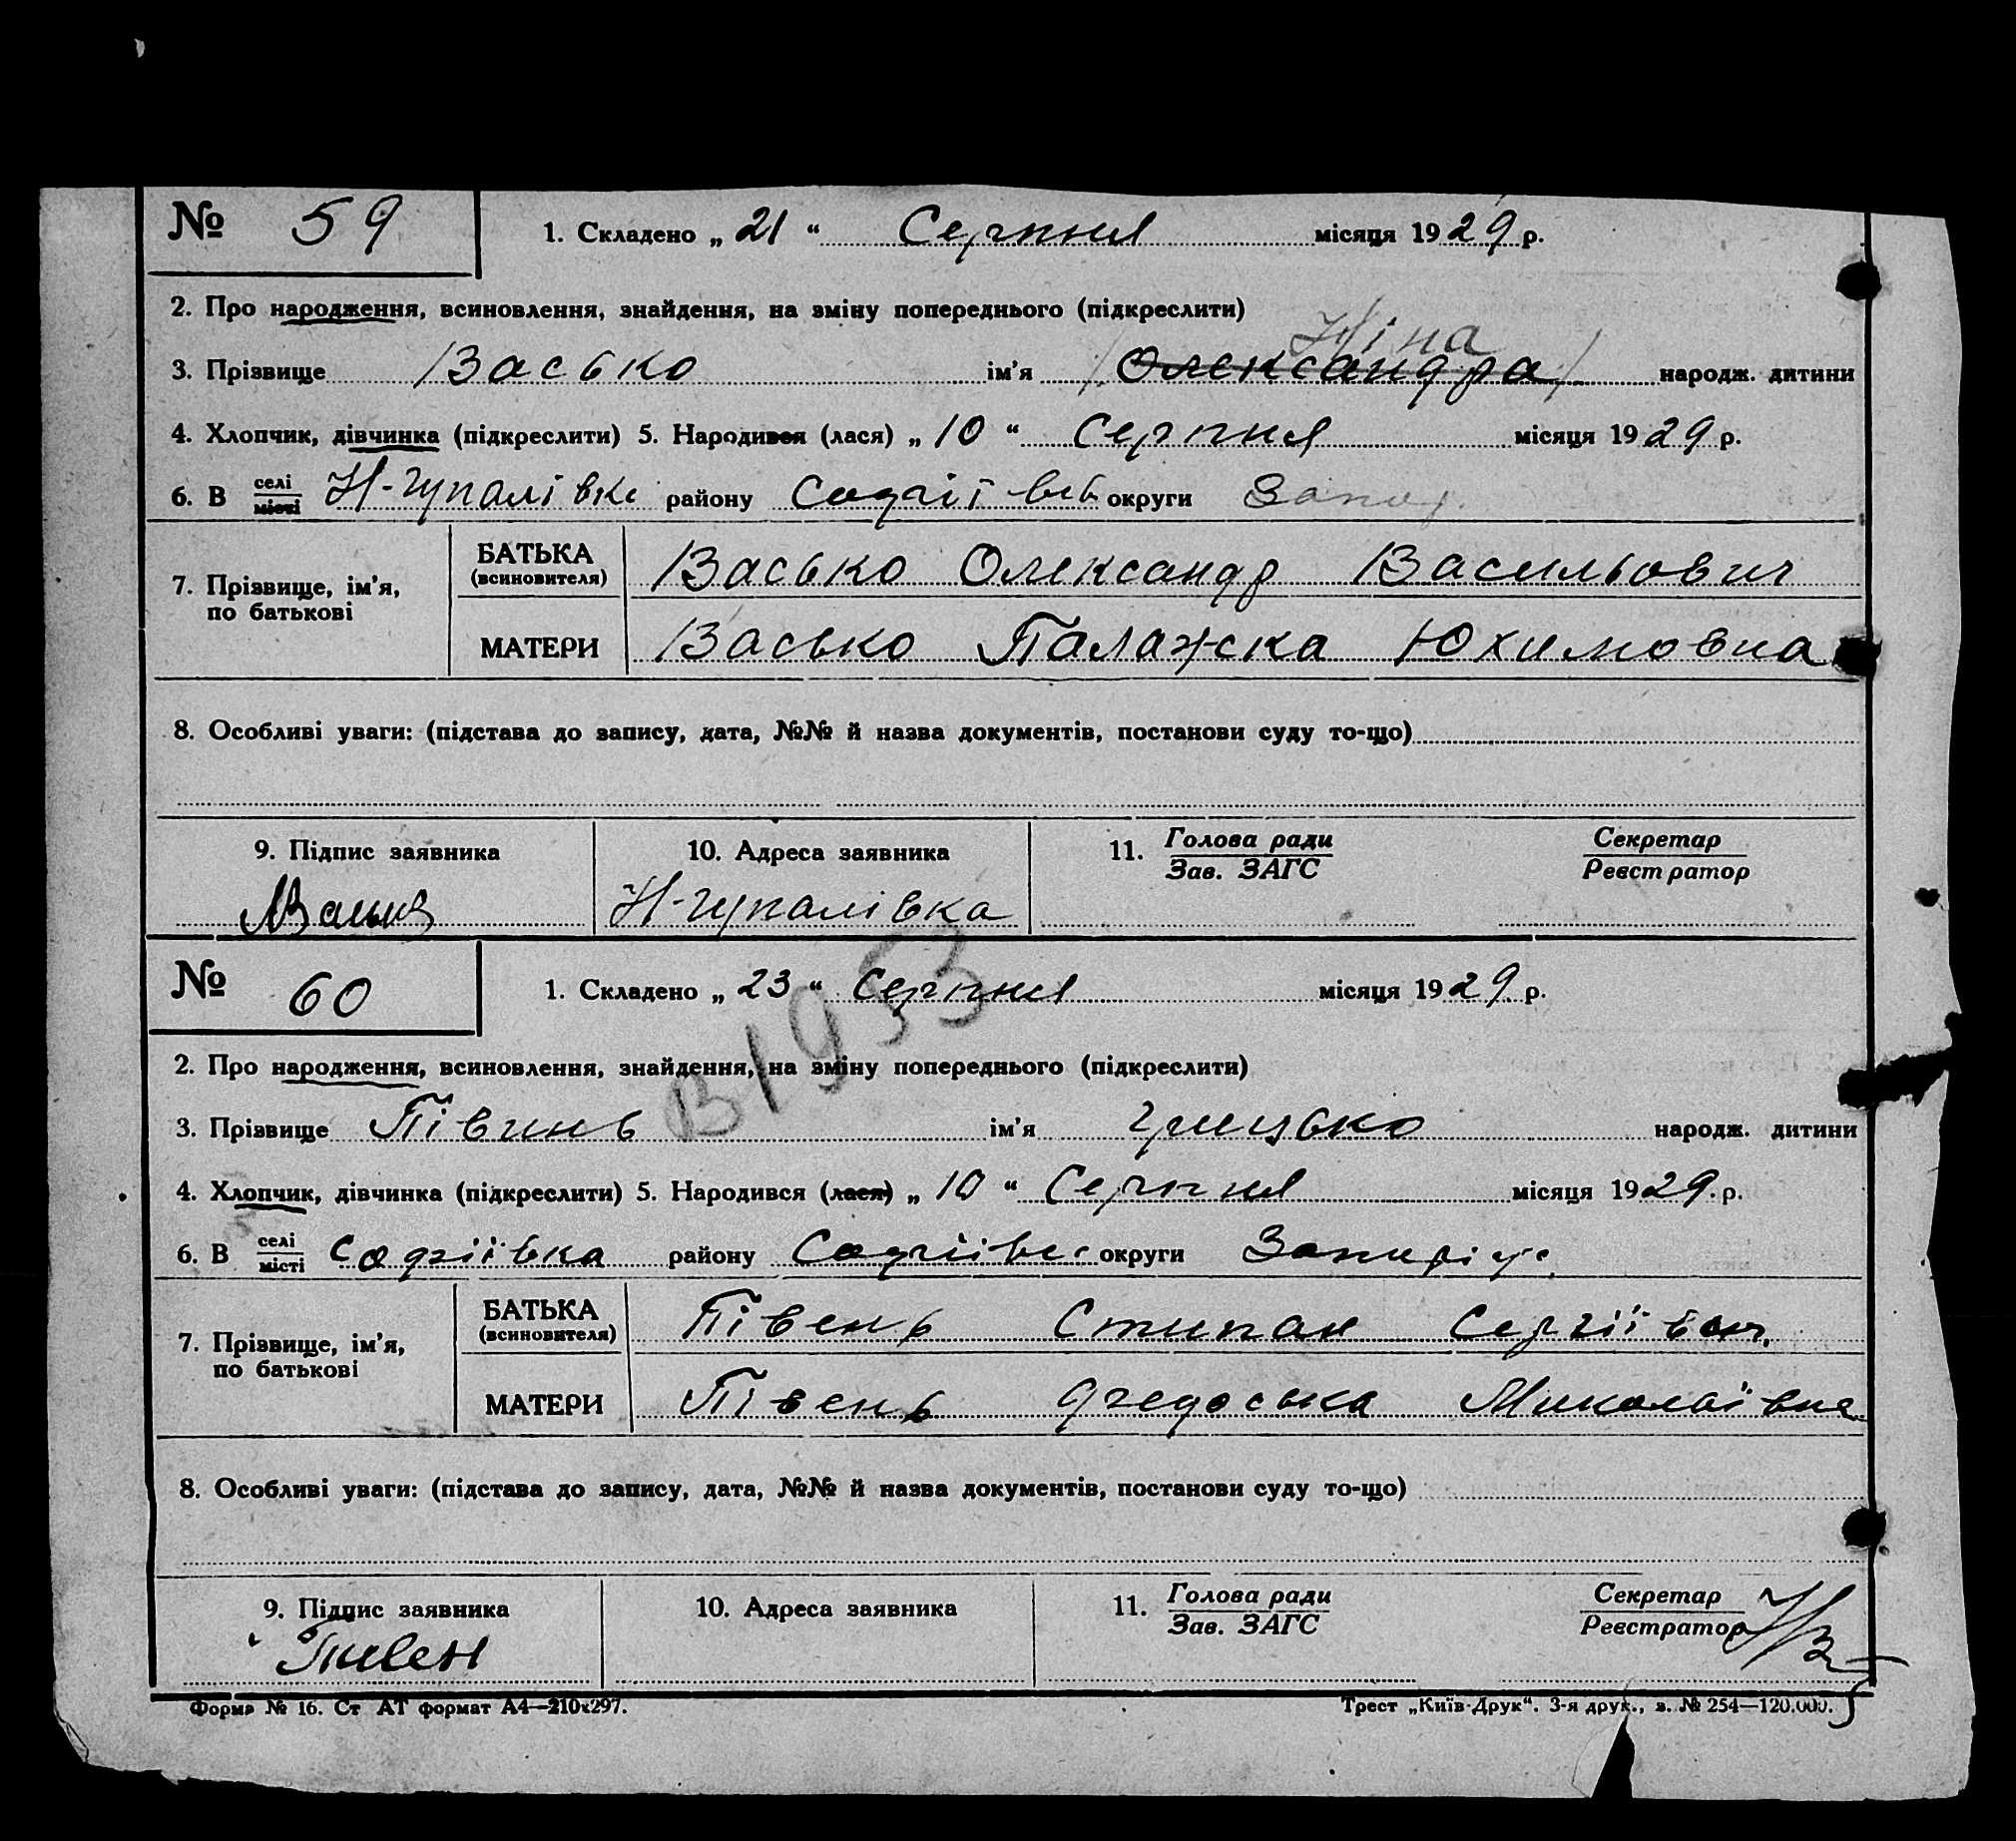 № 59 1. Складено „ 21 “ Серпня місяця 1929 р.
2. Про народження, всиновлення, знайдення, на зміну попереднього (підкреслити)
Ніна
3. Прізвище Васько ім'я Олександра народж. дитини
4. Хлопчик, дівчинка (підкреслити) 5. Народився (лася) „ 10 “ Серпня місяця 1929 р.
6. В селі місті Н-Гупалівка району округи Запор.
7. Прізвище, ім'я, по батькові БАТЬКА (всиновителя) Васько Олександр Васильович
МАТЕРИ Васько Палажска Юхимовна
8. Особливі уваги: (підстава до запису, дата, №№ й назва документів, постанови суду то-що)
9. Підпис заявника 10. Адреса заявника 11. Голова ради Зав. ЗАГС Секретар Реєстратор
Н-Гупалівка
№ 60 1. Складено „ 23 “ Серпня місяця 1929 р.
В 1953
2. Про народження, всиновлення, знайдення, на зміну попереднього (підкреслити)
3. Прізвище Півинь ім'я Грицько народж. дитини
4. Хлопчик, дівчинка (підкреслити) 5. Народився (лася) „ 10 “ Серпня місяця 1929 р.
6. В селі місті Софіївка району округи
7. Прізвище, ім'я, по батькові БАТЬКА (всиновителя) Півень Степан Сергіївич
МАТЕРИ Півень Миколаївна
8. Особливі уваги: (підстава до запису, дата, №№ й назва документів, постанови суду то-що)
9. Підпис заявника 10. Адреса заявника 11. Голова ради Зав. ЗАГС Секретар Реєстратор
Пивен
Форма № 16. Ст АТ формат А4—210х297. Трест „Київ-Друк“. 3-я друк., з. № 254—120.000.